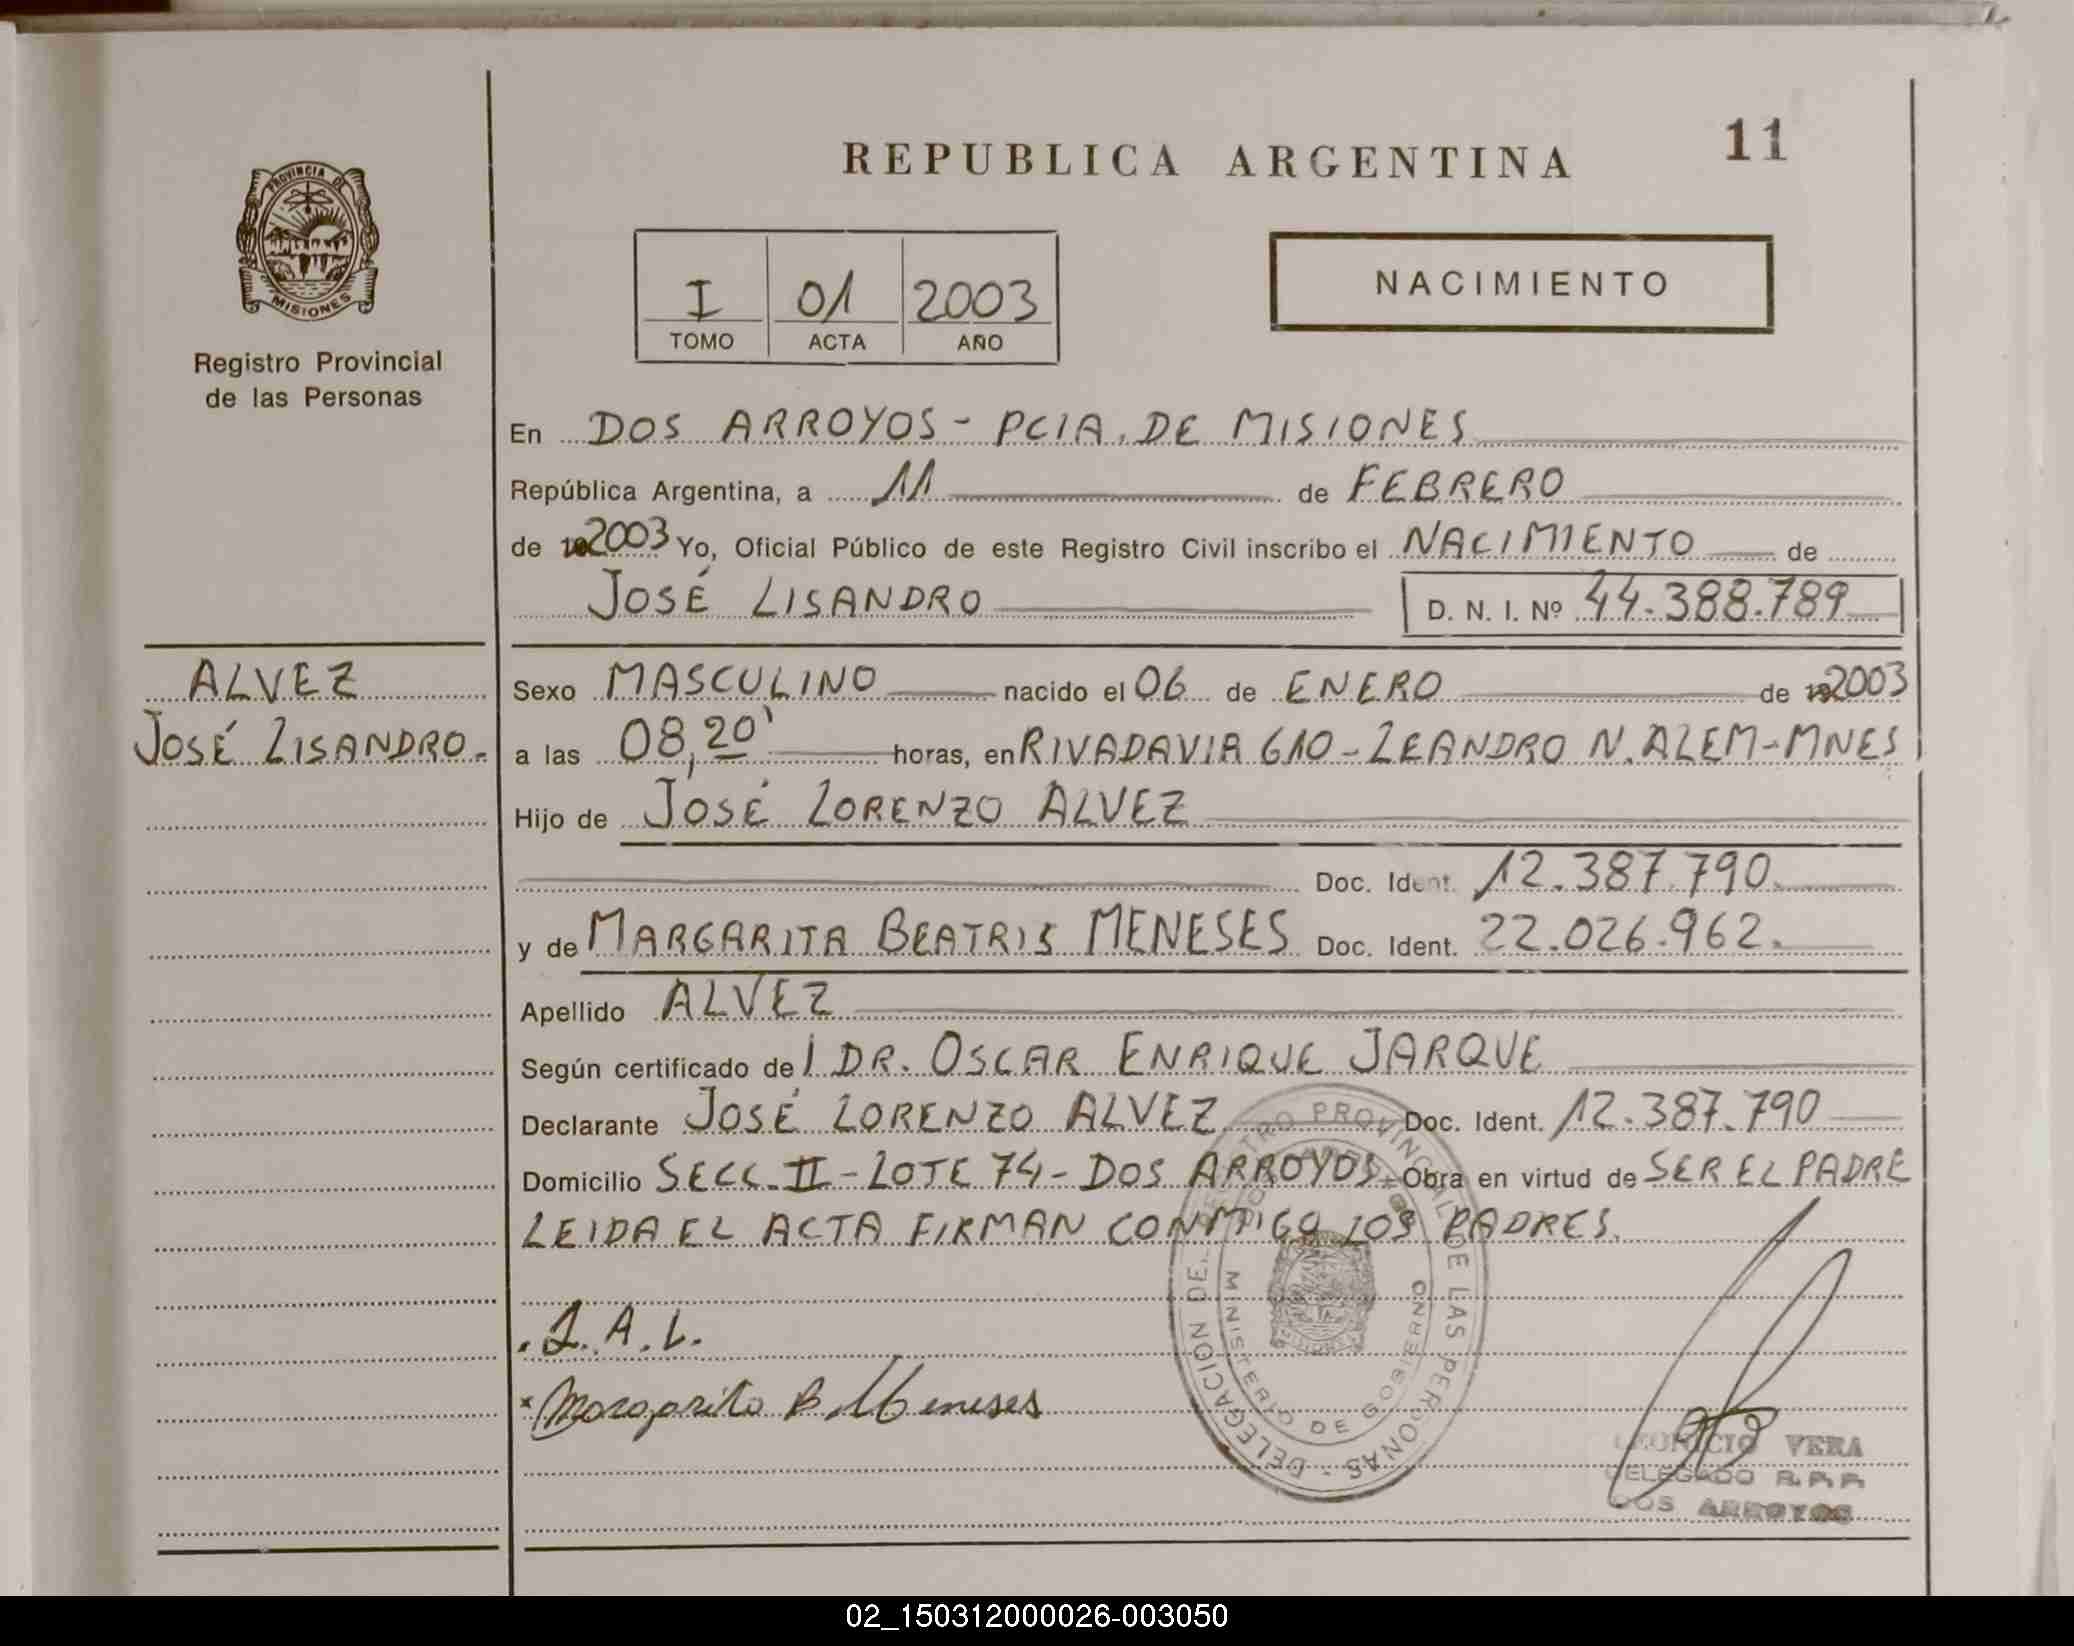 REPUBLICA ARGENTINA
11
PROVINCIA DE
MISIONES
Registro Provincial
de las Personas
I 01 2003
TOMO ACTA AÑO
NACIMIENTO
En DOS ARROYOS - PCIA. DE MISIONES
República Argentina, a 11 de FEBRERO
de 2003 Yo, Oficial Público de este Registro Civil inscribo el NACIMIENTO de
JOSÉ LISANDRO D. N. I. Nº 44.388.789
ALVEZ
JOSÉ LISANDRO.
Sexo MASCULINO nacido el 06 de ENERO de 2003
a las 08,20' horas, en RIVADAVIA 610 - LEANDRO N. ALEM - MNES
Hijo de JOSÉ LORENZO ALVEZ
Doc. Ident. 12.387.790.
y de MARGARITA BEATRIS MENESES Doc. Ident. 22.026.962.
Apellido ALVEZ
Según certificado de l DR. OSCAR ENRIQUE JARQUE
Declarante JOSÉ LORENZO ALVEZ Doc. Ident. 12.387.790
Domicilio SECC. II - LOTE 74 - DOS ARROYOS Obra en virtud de SER EL PADRE
LEIDA EL ACTA FIRMAN CONMIGO LOS PADRES.
DELEGACION DEL REGISTRO PROVINCIAL DE LAS PERSONAS -
DOS ARROYOS
MINISTERIO DE GOBIERNO
Margarita B. Meneses
VERA
DELEGADO R.P.P.
DOS ARROYOS
02_150312000026-003050